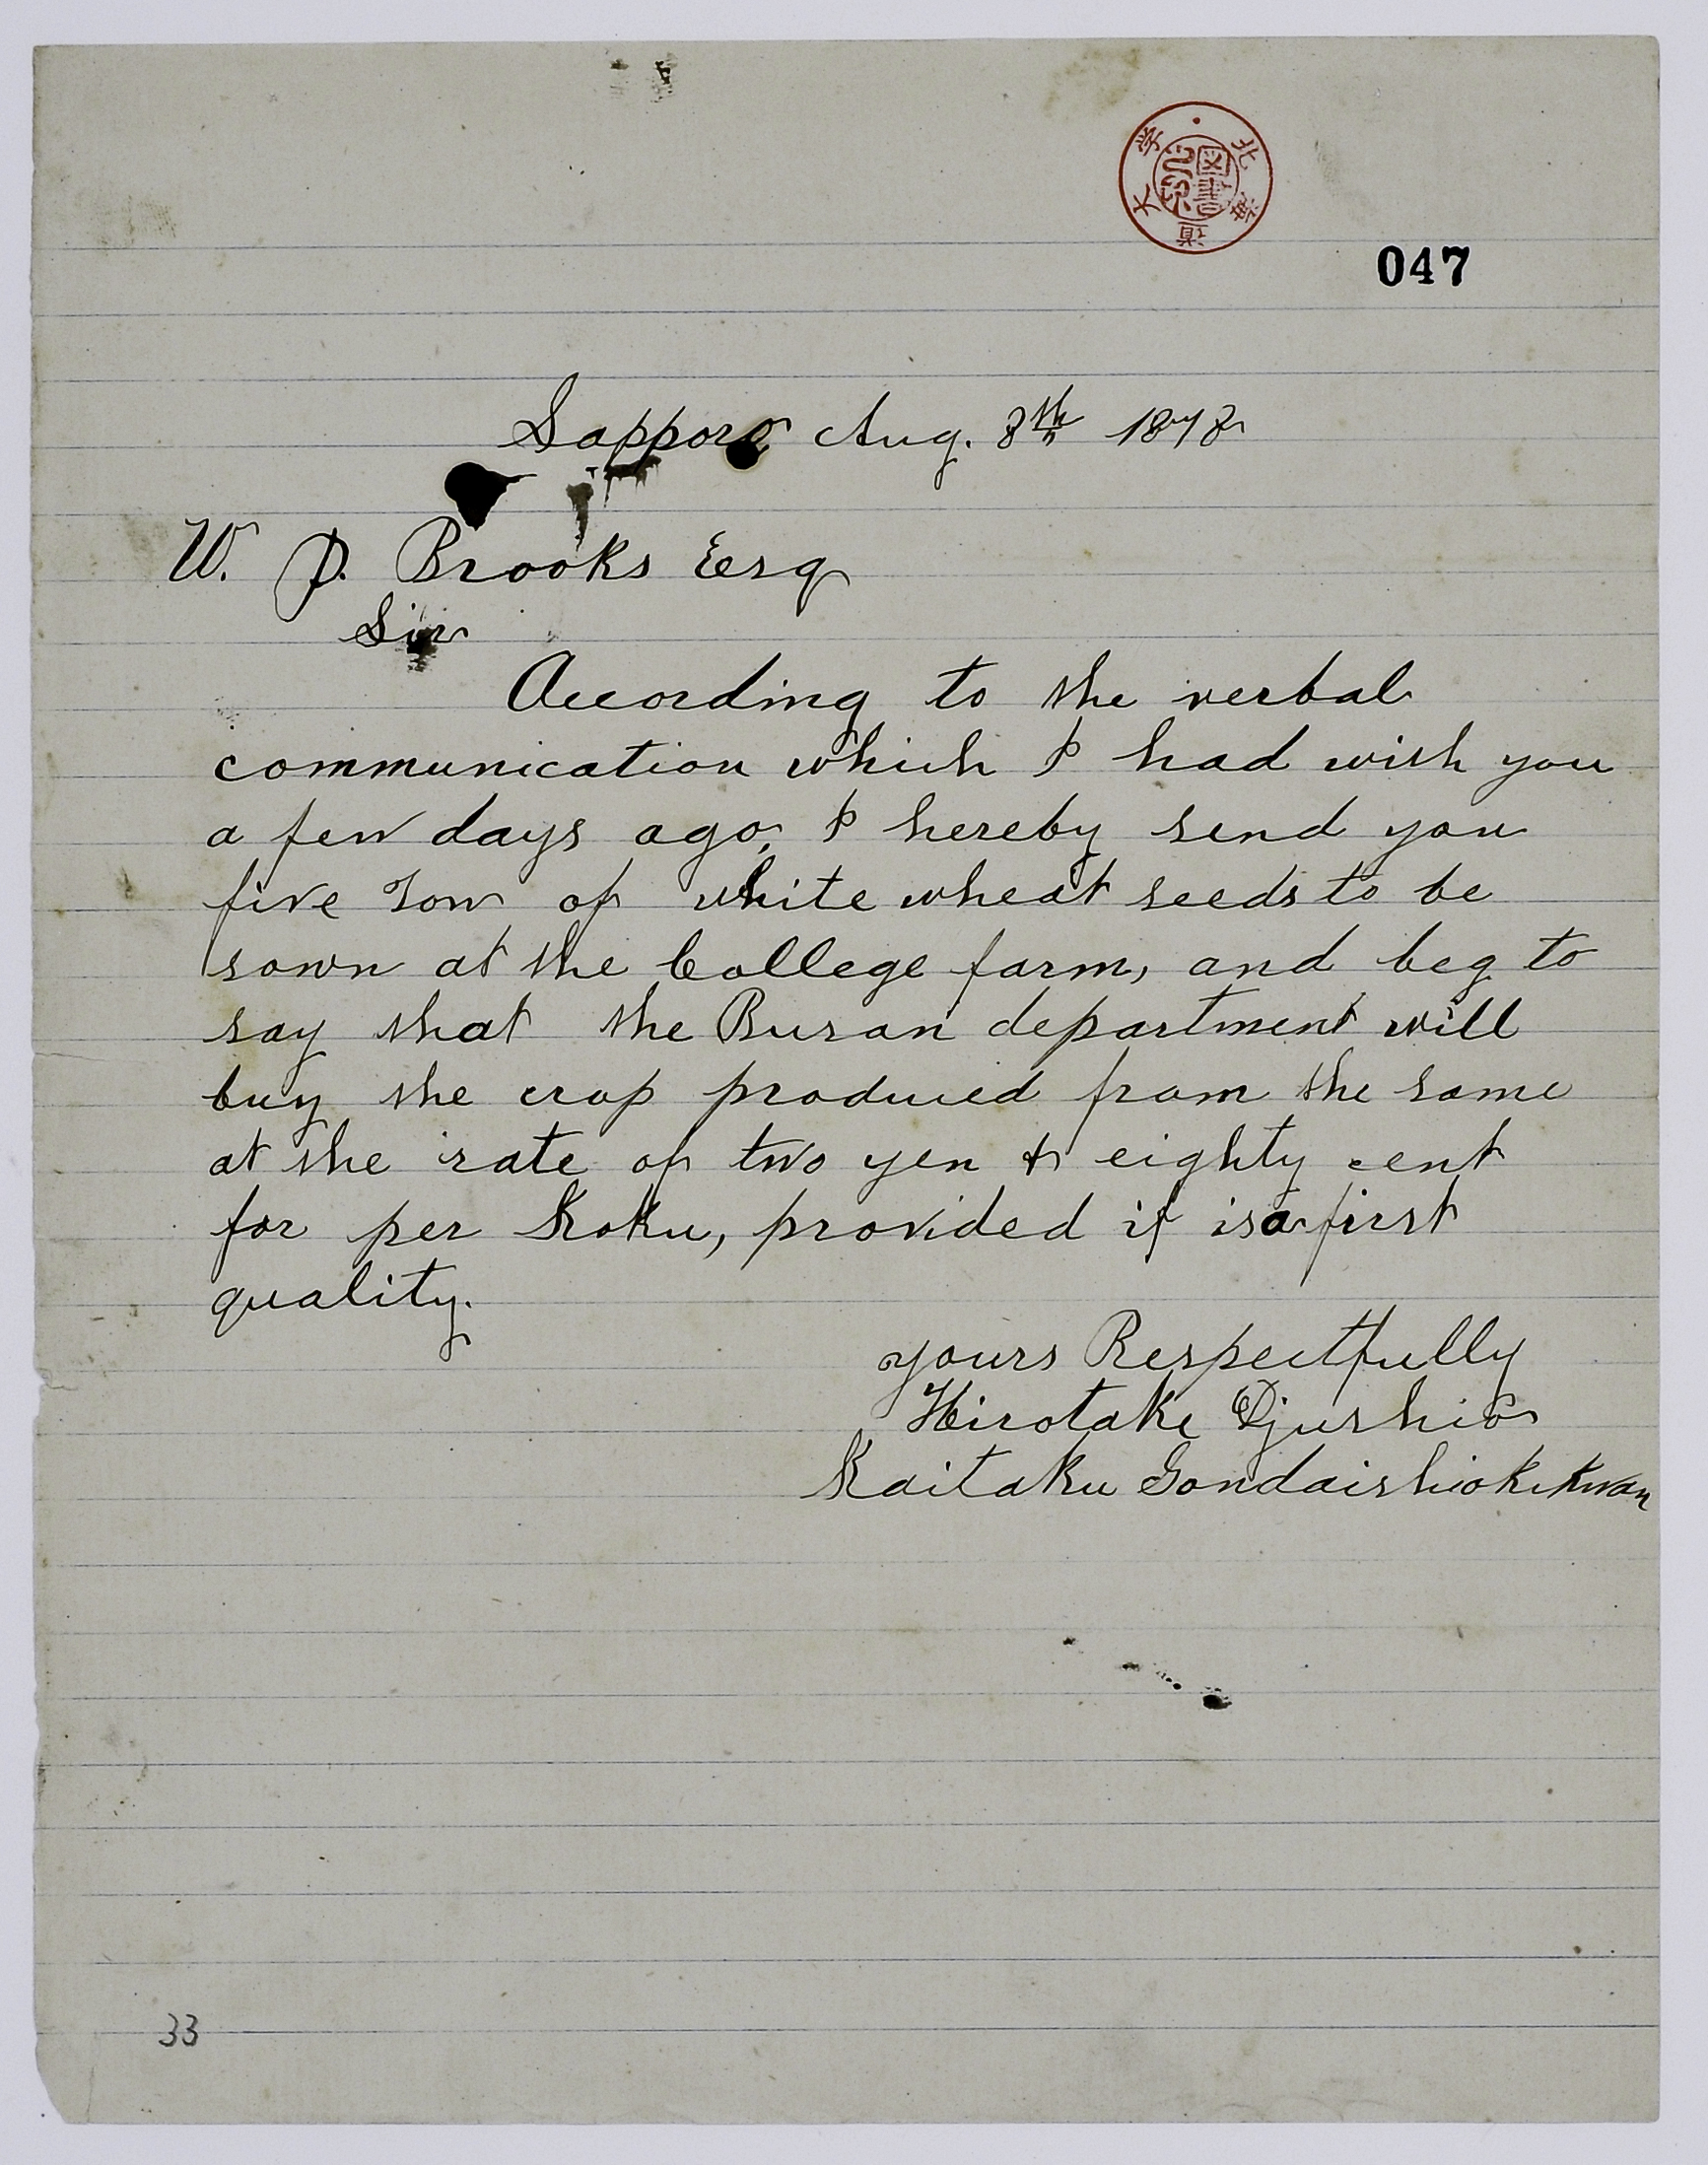 北海道大学
図書
047
Sapporo Aug. 8th 1878
W. P. Brooks Esq
Sir
According to the verbal
communication which I had with you
a few days ago, I hereby send you
five Tow of white wheat seeds to be
sown at the College farm, and beg to
say that the Busan department will
buy the crop produced from the same
at the rate of two yen & eighty cent
for per Koku, provided if is a first
quality.
yours Respectfully
Hirotake Djushio
Kaitaku Gondaishiokikwan
33